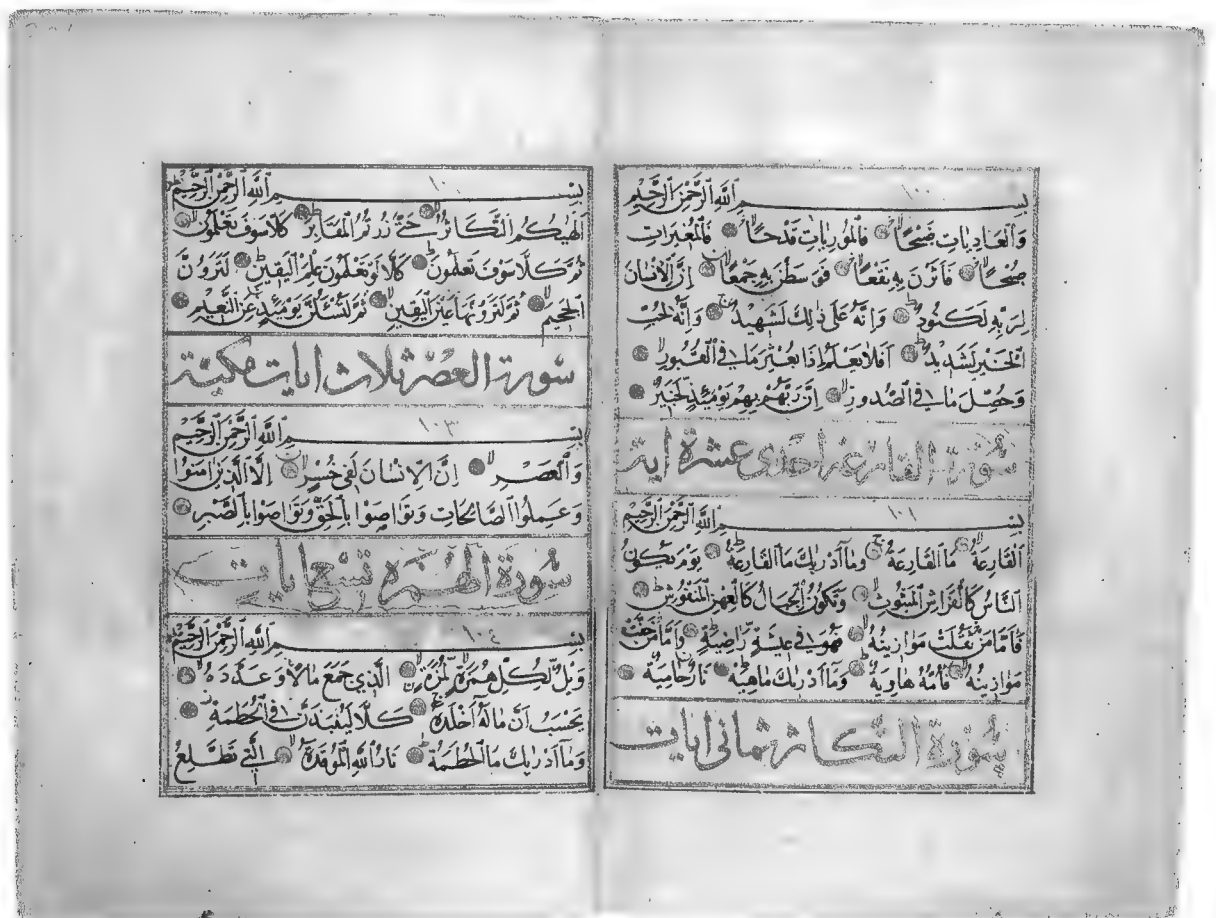 ١٠٠
بِسْمِ ٱللَّهِ ٱلرَّحْمٰنِ ٱلرَّحِيمِ
وَٱلْعَادِيَاتِ ضَبْحًا فَٱلْمُورِيَاتِ قَدْحًا فَٱلْمُغِيرَاتِ
صُبْحًا فَأَثَرْنَ بِهِ نَقْعًا فَوَسَطْنَ بِهِ جَمْعًا إِنَّ ٱلْإِنْسَانَ
لِرَبِّهِ لَكَنُودٌ وَإِنَّهُ عَلَىٰ ذٰلِكَ لَشَهِيدٌ وَإِنَّهُ لِحُبِّ
ٱلْخَيْرِ لَشَدِيدٌ أَفَلَا يَعْلَمُ إِذَا بُعْثِرَ مَا فِي ٱلْقُبُورِ
وَحُصِّلَ مَا فِي ٱلصُّدُورِ إِنَّ رَبَّهُمْ بِهِمْ يَوْمَئِذٍ لَخَبِيرٌ
سُورَةُ القارعة احدى عشرة اية
١٠١
بِسْمِ ٱللَّهِ ٱلرَّحْمٰنِ ٱلرَّحِيمِ
ٱلْقَارِعَةُ مَا ٱلْقَارِعَةُ وَمَآ أَدْرٰيكَ مَا ٱلْقَارِعَةُ يَوْمَ يَكُونُ
ٱلنَّاسُ كَٱلْفَرَاشِ ٱلْمَبْثُوثِ وَتَكُونُ ٱلْجِبَالُ كَٱلْعِهْنِ ٱلْمَنْفُوشِ
فَأَمَّا مَنْ ثَقُلَتْ مَوَازِينُهُ فَهُوَ فِي عِيشَةٍ رَاضِيَةٍ وَأَمَّا مَنْ خَفَّتْ
مَوَازِينُهُ فَأُمُّهُ هَاوِيَةٌ وَمَآ أَدْرٰيكَ مَاهِيَهْ نَارٌ حَامِيَةٌ
سُورَةُ التكاثر ثمانى ايات
١٠٢
بِسْمِ ٱللَّهِ ٱلرَّحْمٰنِ ٱلرَّحِيمِ
أَلْهٰيكُمُ ٱلتَّكَاثُرُ حَتّٰى زُرْتُمُ ٱلْمَقَابِرَ كَلَّا سَوْفَ تَعْلَمُونَ
ثُمَّ كَلَّا سَوْفَ تَعْلَمُونَ كَلَّا لَوْ تَعْلَمُونَ عِلْمَ ٱلْيَقِينِ لَتَرَوُنَّ
ٱلْجَحِيمَ ثُمَّ لَتَرَوُنَّهَا عَيْنَ ٱلْيَقِينِ ثُمَّ لَتُسْئَلُنَّ يَوْمَئِذٍ عَنِ ٱلنَّعِيمِ
سورة العصر ثلاث ايات مكية
١٠٣
بِسْمِ ٱللَّهِ ٱلرَّحْمٰنِ ٱلرَّحِيمِ
وَٱلْعَصْرِ إِنَّ ٱلْإِنْسَانَ لَفِي خُسْرٍ إِلَّا ٱلَّذِينَ اٰمَنُوا
وَعَمِلُوا ٱلصَّالِحَاتِ وَتَوَاصَوْا بِٱلْحَقِّ وَتَوَاصَوْا بِٱلصَّبْرِ
سُورَةُ الهمزة تسع ايات
١٠٤
بِسْمِ ٱللَّهِ ٱلرَّحْمٰنِ ٱلرَّحِيمِ
وَيْلٌ لِكُلِّ هُمَزَةٍ لُمَزَةٍ ٱلَّذِي جَمَعَ مَالًا وَعَدَّدَهُ
يَحْسَبُ أَنَّ مَالَهُ أَخْلَدَهُ كَلَّا لَيُنْبَذَنَّ فِي ٱلْحُطَمَةِ
وَمَآ أَدْرٰيكَ مَا ٱلْحُطَمَةُ نَارُ ٱللَّهِ ٱلْمُوقَدَةُ ٱلَّتِي تَطَّلِعُ